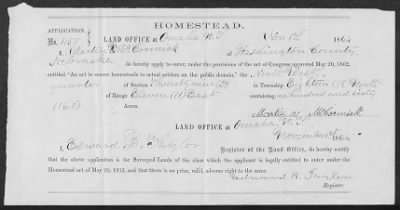 HOMESTEAD.
APPLICATION,
No. 450
LAND OFFICE at Omaha N.T. Nov 1st 1864
I, Martin McCormick of Washington County
Nebraska do hereby apply to enter, under the provisions of the act of Congress approved May 20, 1862,
entitled "An act to secure homesteads to actual settlers on the public domain," the North West
quarter of Section Twenty nine in Township Eighteen (18) North
of Range Eleven (11) East containing one hundred and sixty
(160) acres.
Martin McCormick
LAND OFFICE at Omaha N.T.
November 1st 1864
I, Edward B. Taylor Register of the Land Office, do hereby certify
that the above application is for Surveyed Lands of the class which the applicant is legally entitled to enter under the
Homestead act of May 20, 1862, and that there is no prior, valid, adverse right to the same.
Edward B. Taylor
Register.